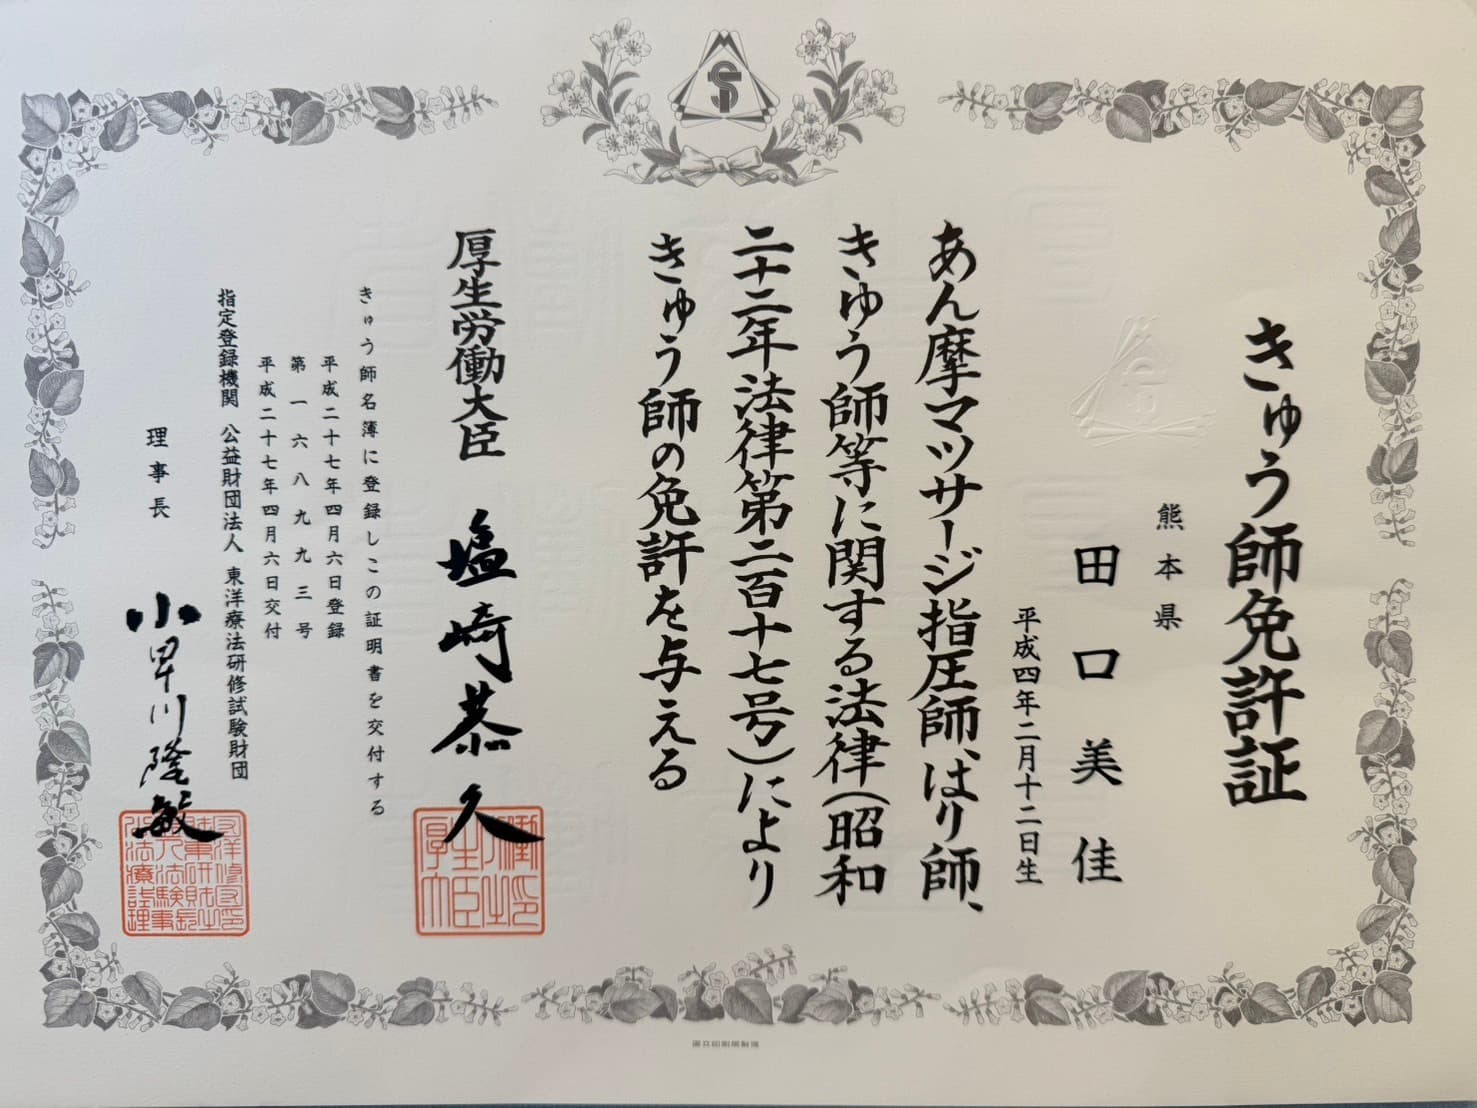 きゅう師免許証
熊本県
田口美佳
平成四年二月十二日生
あん摩マツサージ指圧師、はり師、
きゅう師等に関する法律（昭和
二十二年法律第二百十七号）により
きゅう師の免許を与える
厚生労働大臣 塩崎恭久
きゅう師名簿に登録しこの証明書を交付する
平成二十七年四月六日登録
第一六八九九三号
平成二十七年四月六日交付
指定登録機関 公益財団法人 東洋療法研修試験財団
理事長 小早川隆敏